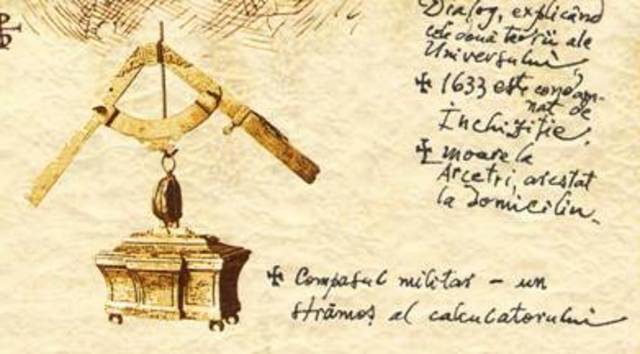 Dialog, explicând
cele două teorii ale
Universului,
1633 este condam-
nat de
Inchiziție,
moare la
Arcetri, arestat
la domiciliu.
Compasul militar – un
strămoș al calculatorului